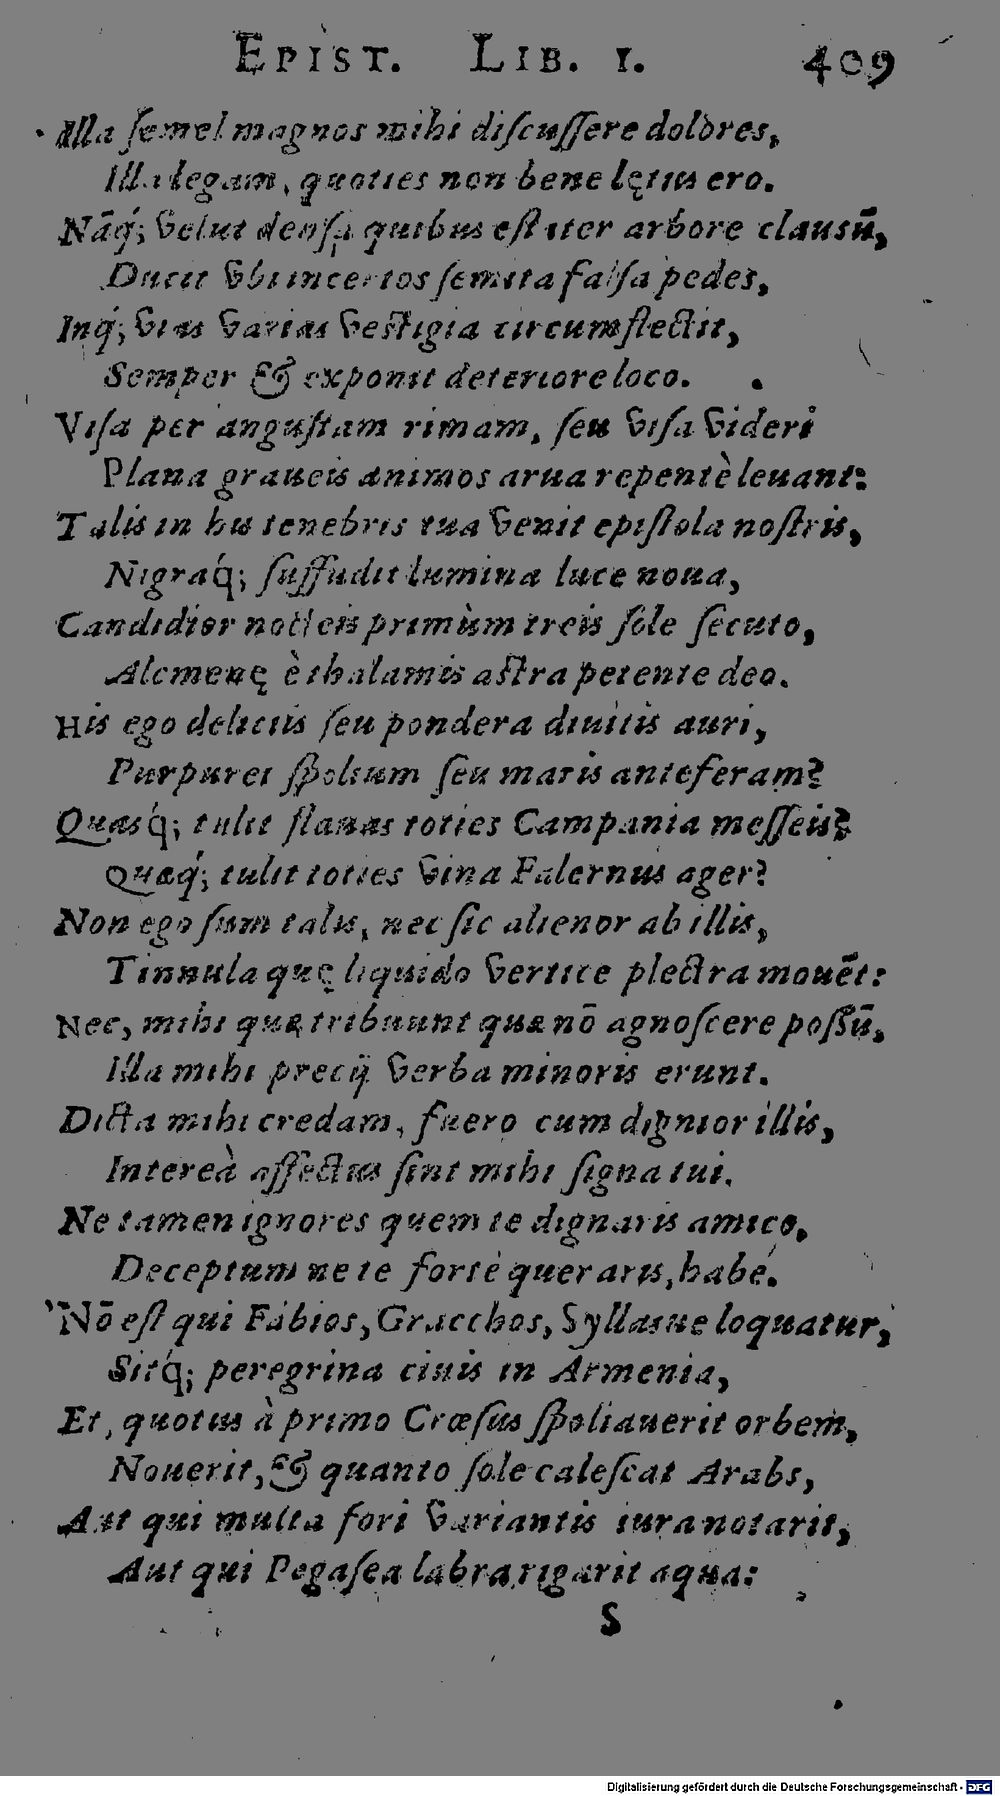 EPIST. LIB. I. 409
Illa ſemel magnos mihi diſcuſſere dolores,
Illa legam, quoties non bene lętus ero.
Nāq́; velut denſa quibus eſt iter arbore clausū,
Ducit vbi incertos ſemita falſa pedes,
Inq́; vias varias veſtigia circumflectit,
Semper & exponit deteriore loco.
Viſa per anguſtam rimam, ſeu viſa videri
Plana graueis animos arua repentè leuant:
Talis in his tenebris tua venit epiſtola noſtris,
Nigraq́; ſuffudit lumina luce noua,
Candidior nocteis primùm treis ſole ſecuto,
Alcmenę è thalamis aſtra petente deo.
His ego deliciis ſeu pondera diuitis auri,
Purpurei ſpolium ſeu maris anteferam?
Quasq́; tulit flauas toties Campania meſſeis?
Quæq́; tulit toties vina Falernus ager?
Non ego ſum talis, nec ſic alienor ab illis,
Tinnula quę liquido vertice plectra mouēt:
Nec, mihi quæ tribuunt quæ nō agnoſcere poſſū,
Illa mihi precij verba minoris erunt.
Dicta mihi credam, fuero cum dignior illis,
Intereà affectus ſint mihi ſigna tui.
Ne tamen ignores quem te dignaris amico,
Deceptum ne te fortè queraris, habe.
Nō eſt qui Fabios, Gracchos, Syllasue loquatur,
Sitq́; peregrina ciuis in Armenia,
Et, quotus à primo Crœſus ſpoliauerit orbem,
Nouerit, & quanto ſole caleſcat Arabs,
Aut qui multa fori variantis iura notarit,
Aut qui Pegaſea labra rigarit aqua:
S
Digitalisierung gefördert durch die Deutsche Forschungsgemeinschaft - DFG